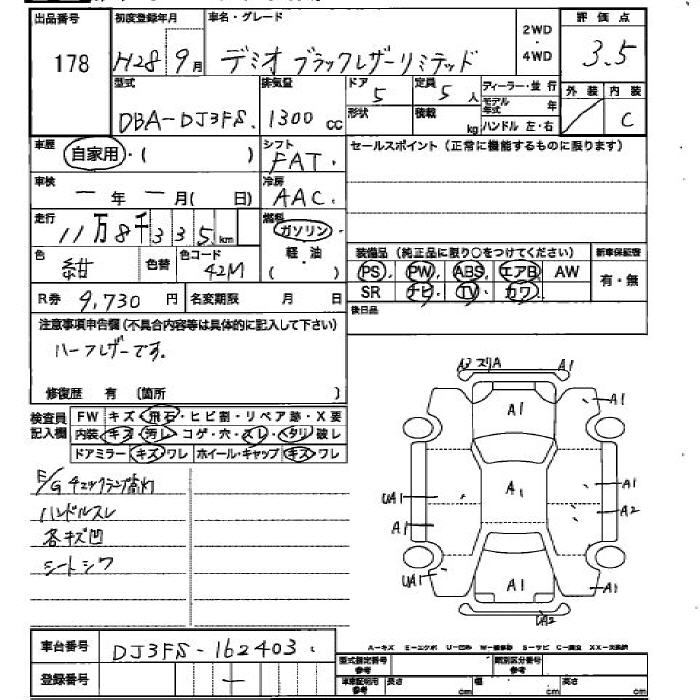 出品番号 初度登録年月 車名・グレード 2WD・4WD 評価点
178 H28 9月 デミオ ブラックレザーリミテッド 3.5
型式 排気量 ドア 定員 ディーラー・並行 外装 内装
DBA-DJ3FS. 1300 cc 5 5人 モデル年式 年 C
形状 積載 kg ハンドル 左・右
車歴 自家用・( ) シフト FAT. セールスポイント(正常に機能するものに限ります)
車検 ー年ー月( 日) 冷房 AAC.
走行 11万8千335km 燃料 ガソリン・軽・油( )
色 紺 色替 色コード 42M
装備品(純正品に限り○をつけてください) 新車保証書
PS. PW. ABS. エアB AW 有・無
SR ナビ. TV. カワ.
R券 9,730円 名変期限 月 日 後日品
注意事項申告欄(不具合内容等は具体的に記入して下さい)
ハーフレザーです.
修復歴 有 〔箇所 〕
検査員記入欄 FW キズ・飛石・ヒビ割・リペア跡・X要
内装 キズ・汚レ・コゲ・穴・スレ・ヘタリ・破レ
ドアミラー キズ・ワレ ホイール・キャップ キズ・ワレ
E/Gチェックランプ点灯
ハンドルスレ
各キズ凹
シートシワ
A3 スリA A1
A1 A1
UA1 A1 A1
A1 A2
UA1 A1 A1
UA2
A-キズ E-エクボ U-凹み W-補修跡 S-サビ C-腐食 XX-交換済
車台番号 DJ3FS-162403
登録番号 ー
型式指定番号 参考 類別区分番号 参考
車庫証明用 参考 長さ cm 幅 cm 高さ cm